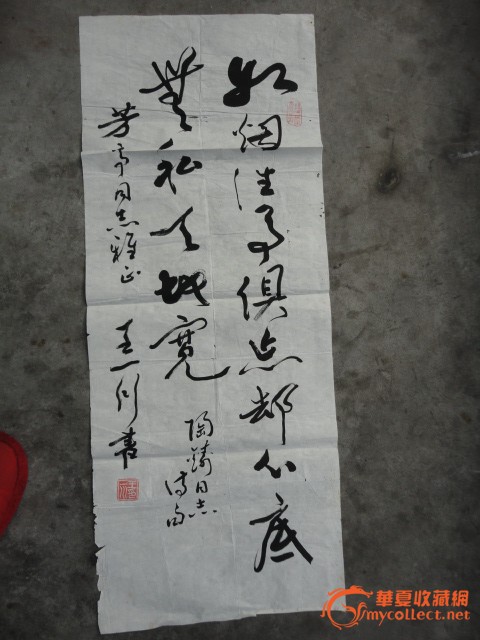 如烟往事俱忘却心底
無私天地寬
陶鑄同志
诗句
芳亭同志雅正
王一行書
華夏收藏網
mycollect.net